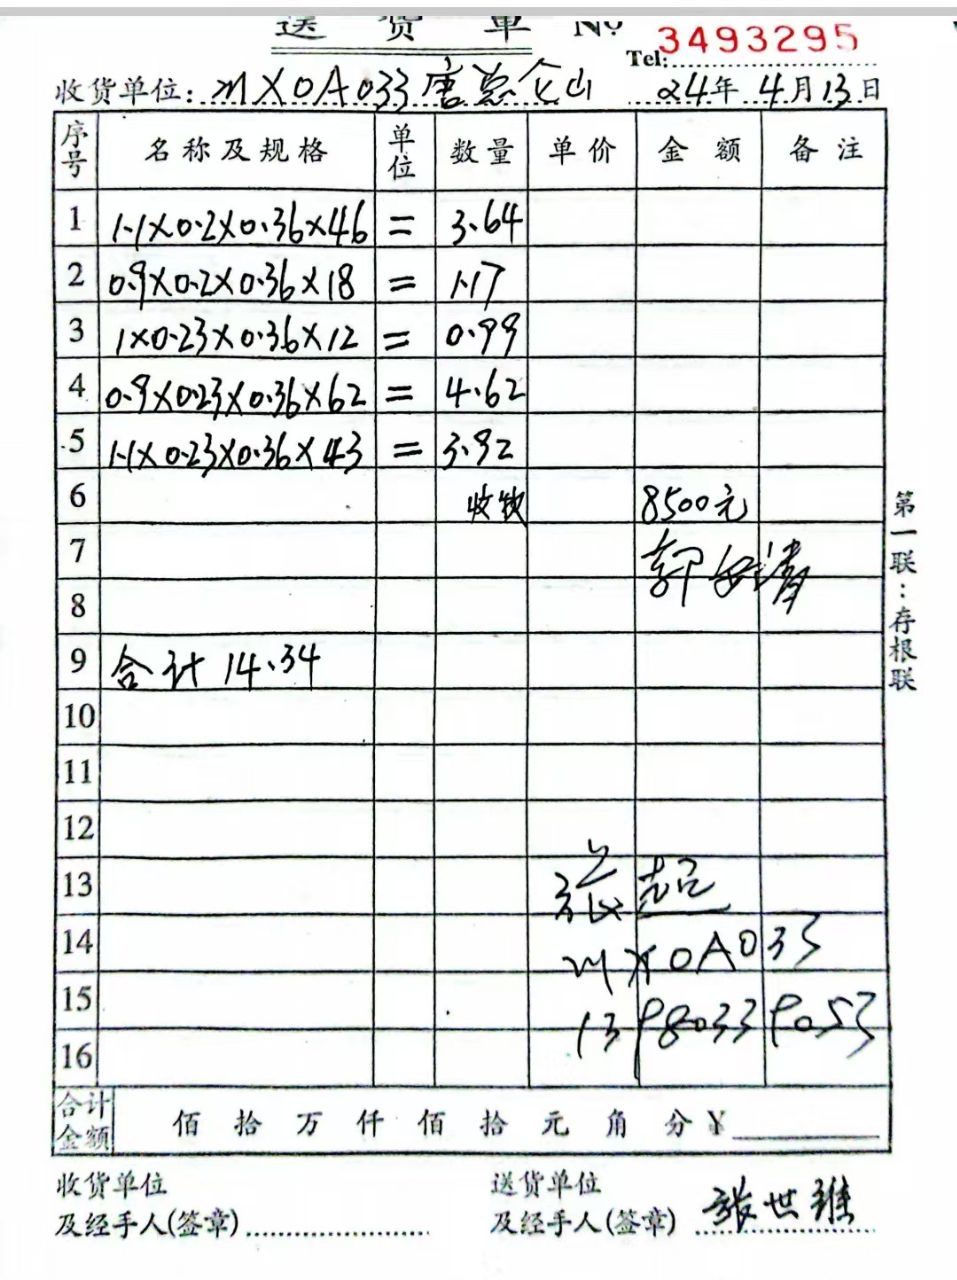 送 货 单 No 3493295
Tel:
收货单位: 川X0A033唐总仓山 24年 4月13日
序号 名称及规格 单位 数量 单价 金额 备注
1 1.1×0.2×0.36×46 = 3.64
2 0.9×0.2×0.36×18 = 1.17
3 1×0.23×0.36×12 = 0.99
4 0.9×0.23×0.36×62 = 4.62
5 1.1×0.23×0.36×43 = 3.92
6 收款 8500元
7 郭 清
8
9 合计 14.34
10
11
12
13
14 川X0A033
15 13980339053
16
合计金额 佰 拾 万 仟 佰 拾 元 角 分 ¥
收货单位 送货单位
及经手人(签章) 及经手人(签章) 张世雄
第一联:存根联